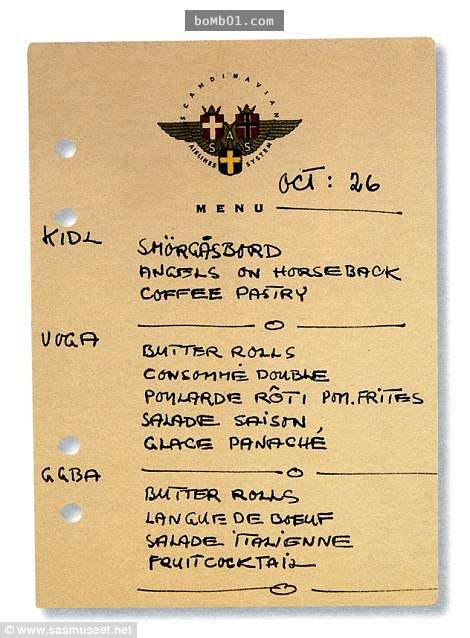 bomb01.com
SCANDINAVIAN
SAS
AIRLINES SYSTEM
OCT : 26
MENU
KIDL
SMÖRGÅSBORD
ANGELS ON HORSEBACK
COFFEE PASTRY
UOGA
BUTTER ROLLS
CONSOMMÉ DOUBLE
POULARDE RÔTI POM. FRITES
SALADE SAISON
GLACE PANACHÉ
GGBA
BUTTER ROLLS
LANGUE DE BOEUF
SALADE ITALIENNE
FRUITCOCKTAIL
© www.sasmuseet.net